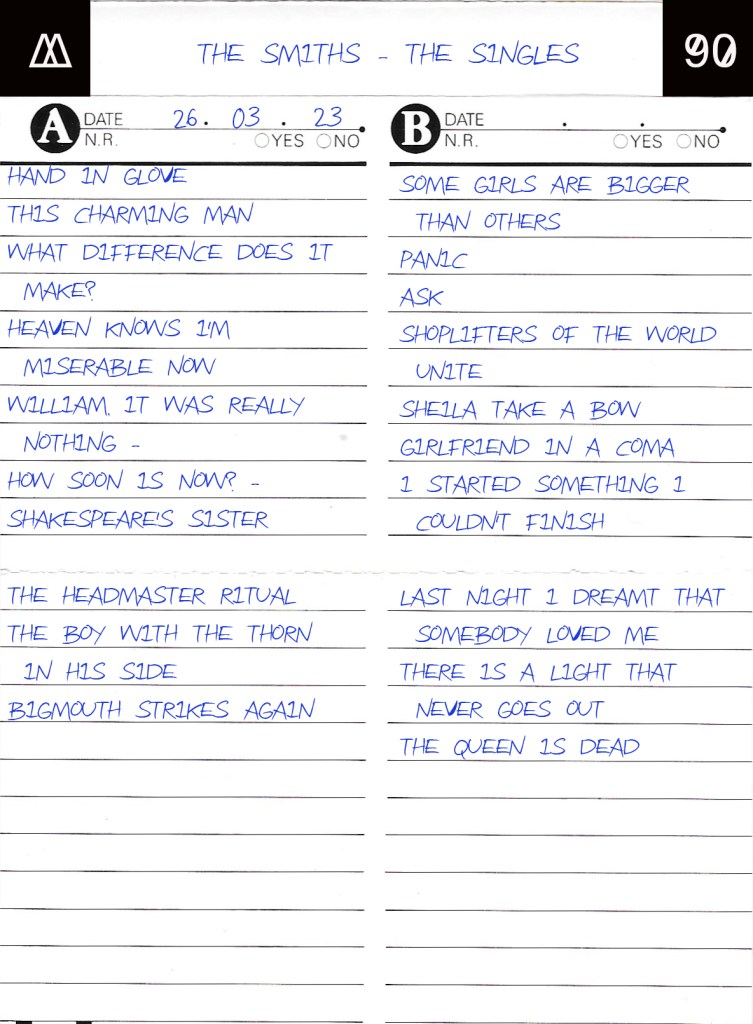 THE SMITHS - THE SINGLES
90
A DATE 26. 03. 23
N.R. YES NO
HAND IN GLOVE
THIS CHARMING MAN
WHAT DIFFERENCE DOES IT
MAKE?
HEAVEN KNOWS I'M
MISERABLE NOW
WILLIAM, IT WAS REALLY
NOTHING -
HOW SOON IS NOW? -
SHAKESPEARE'S SISTER
THE HEADMASTER RITUAL
THE BOY WITH THE THORN
IN HIS SIDE
BIGMOUTH STRIKES AGAIN
B DATE . .
N.R. YES NO
SOME GIRLS ARE BIGGER
THAN OTHERS
PANIC
ASK
SHOPLIFTERS OF THE WORLD
UNITE
SHEILA TAKE A BOW
GIRLFRIEND IN A COMA
I STARTED SOMETHING I
COULDN'T FINISH
LAST NIGHT I DREAMT THAT
SOMEBODY LOVED ME
THERE IS A LIGHT THAT
NEVER GOES OUT
THE QUEEN IS DEAD